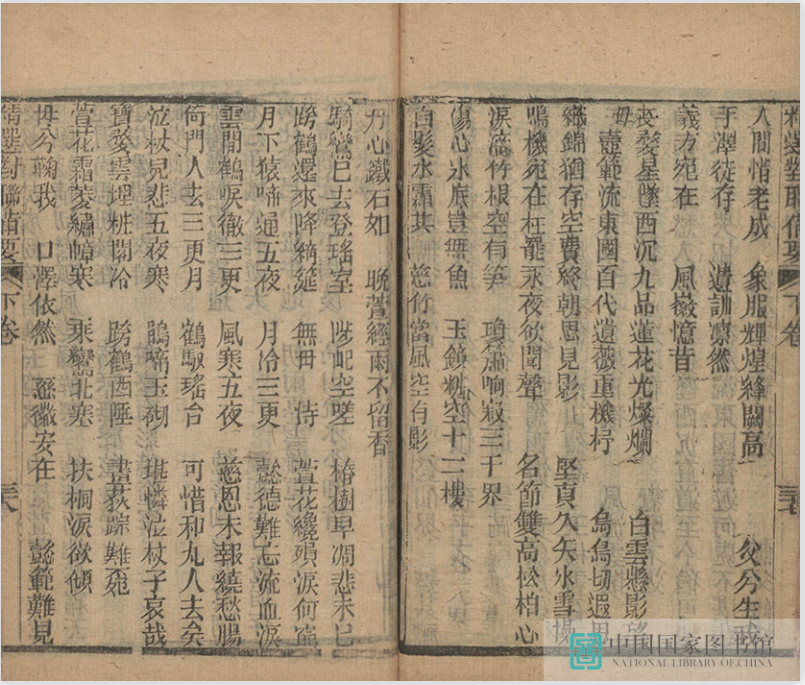 精選對聯備要 下卷
人間惜老成 象服輝煌絳闕高 父兮生我
手澤徒存 遺訓凛然
義方宛在 風徽憶昔
母 長婺星墜西沉九品蓮花光燦爛 白雲懸影望
壼範流東國百代遺薇重機杼 烏鳥切遐思
織錦猶存空費終朝思見影 堅貞久矢氷雪操
鳴機宛在枉罷永夜欲聞聲 名節雙高松柏心
淚滴竹根空有笋 瓊簫响寂三千界
傷心氷底豈無魚 玉鏡粧空十二樓
白髮氷霜其 慈竹當風空有影
丹心鐵石如 晩萱經雨不留香
驂鸞已去登瑤室 陟屺空嗟 椿樹早凋悲未已
跨鶴還來降綺筵 無母 侍 萱花纔殞淚何窮
月下猿啼通五夜 月冷三更 懿德難忘流血淚
雲間鶴唳徹三更 風寒五夜 慈恩未報繞愁腸
倚門人去三更月 鶴馭瑤台 可惜和丸人去矣
泣杖兒悲五夜寒 鵑啼玉砌 堪憐泣杖子哀哉
寶婺雲埋粧閣冷 跨鶴西陲 畫荻踪難覓
萱花霜萎繡幃寒 乘鸞北塞 扶桐淚欲傾
母兮鞠我 口澤依然 慈徽安在 懿範難見
精選對聯備要 下卷 三六
中国国家图书馆
NATIONAL LIBRARY OF CHINA